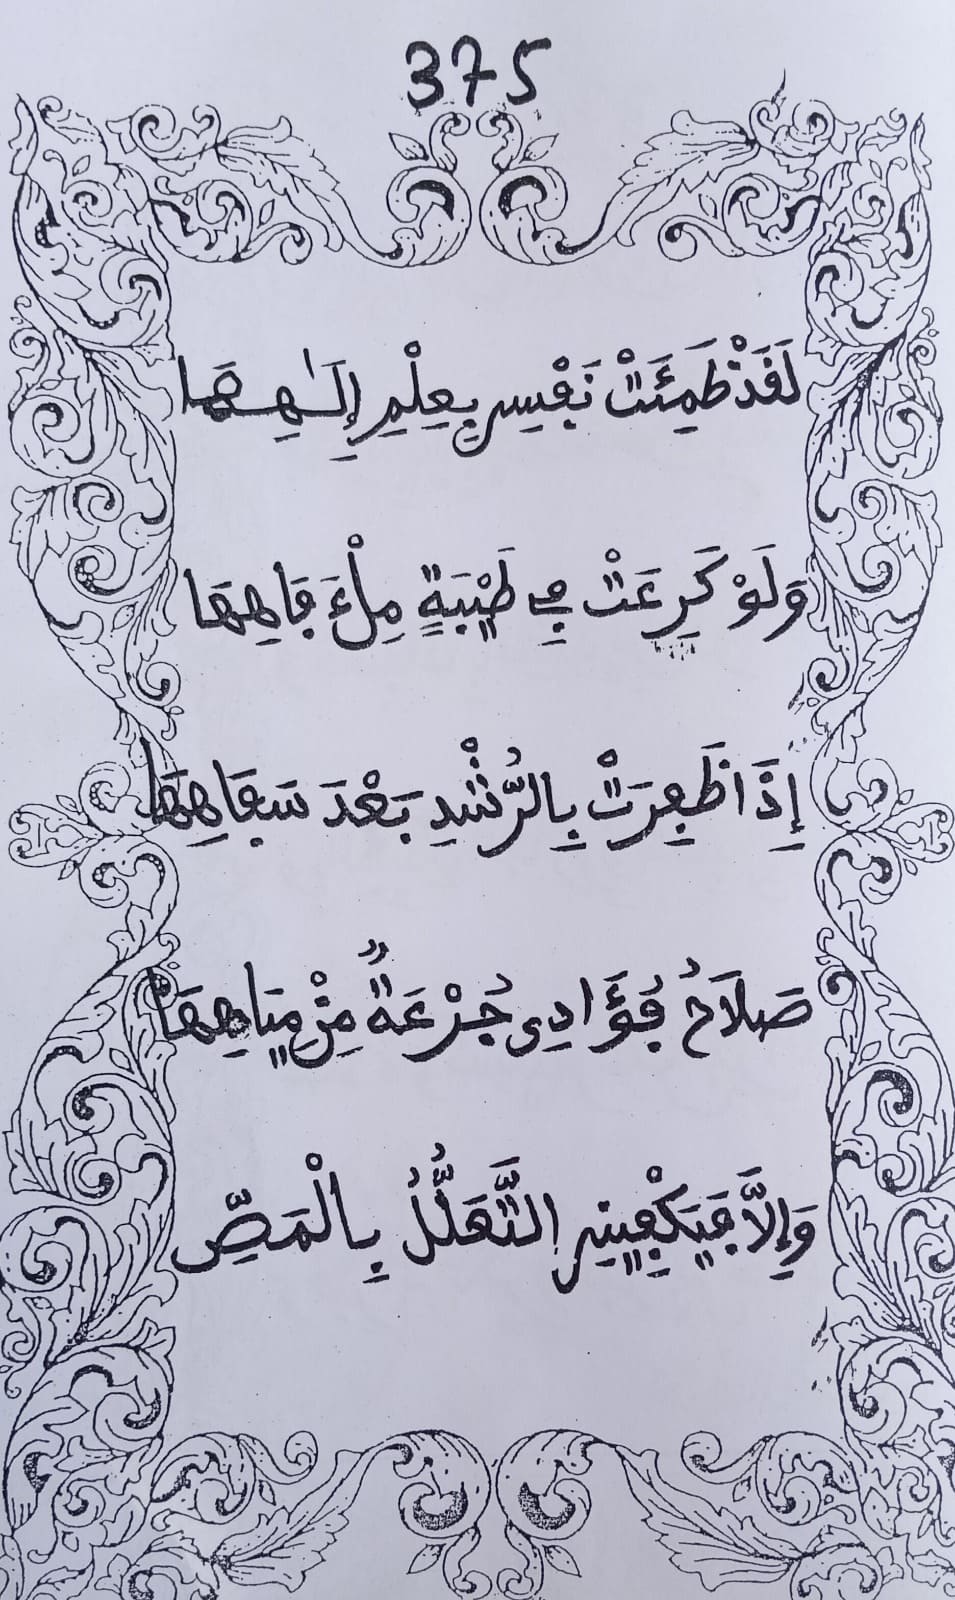 375
لَقَدْ ظَمِئَتْ نَفْسِي بِعِلْمِ إِلَٰهِهَا
وَلَوْ كَرِعَتْ فِي طَيْبَةٍ مِلْءَ فَاهِهَا
إِذَا ظَفِرَتْ بِالرُّشْدِ بَعْدَ سَفَاهِهَا
صَلَاحُ فُؤَادِي جُرْعَةٌ مِنْ مِيَاهِهَا
وَإِلَّا فَيَكْفِينِي التَّعَلُّلُ بِالْمَصِّ